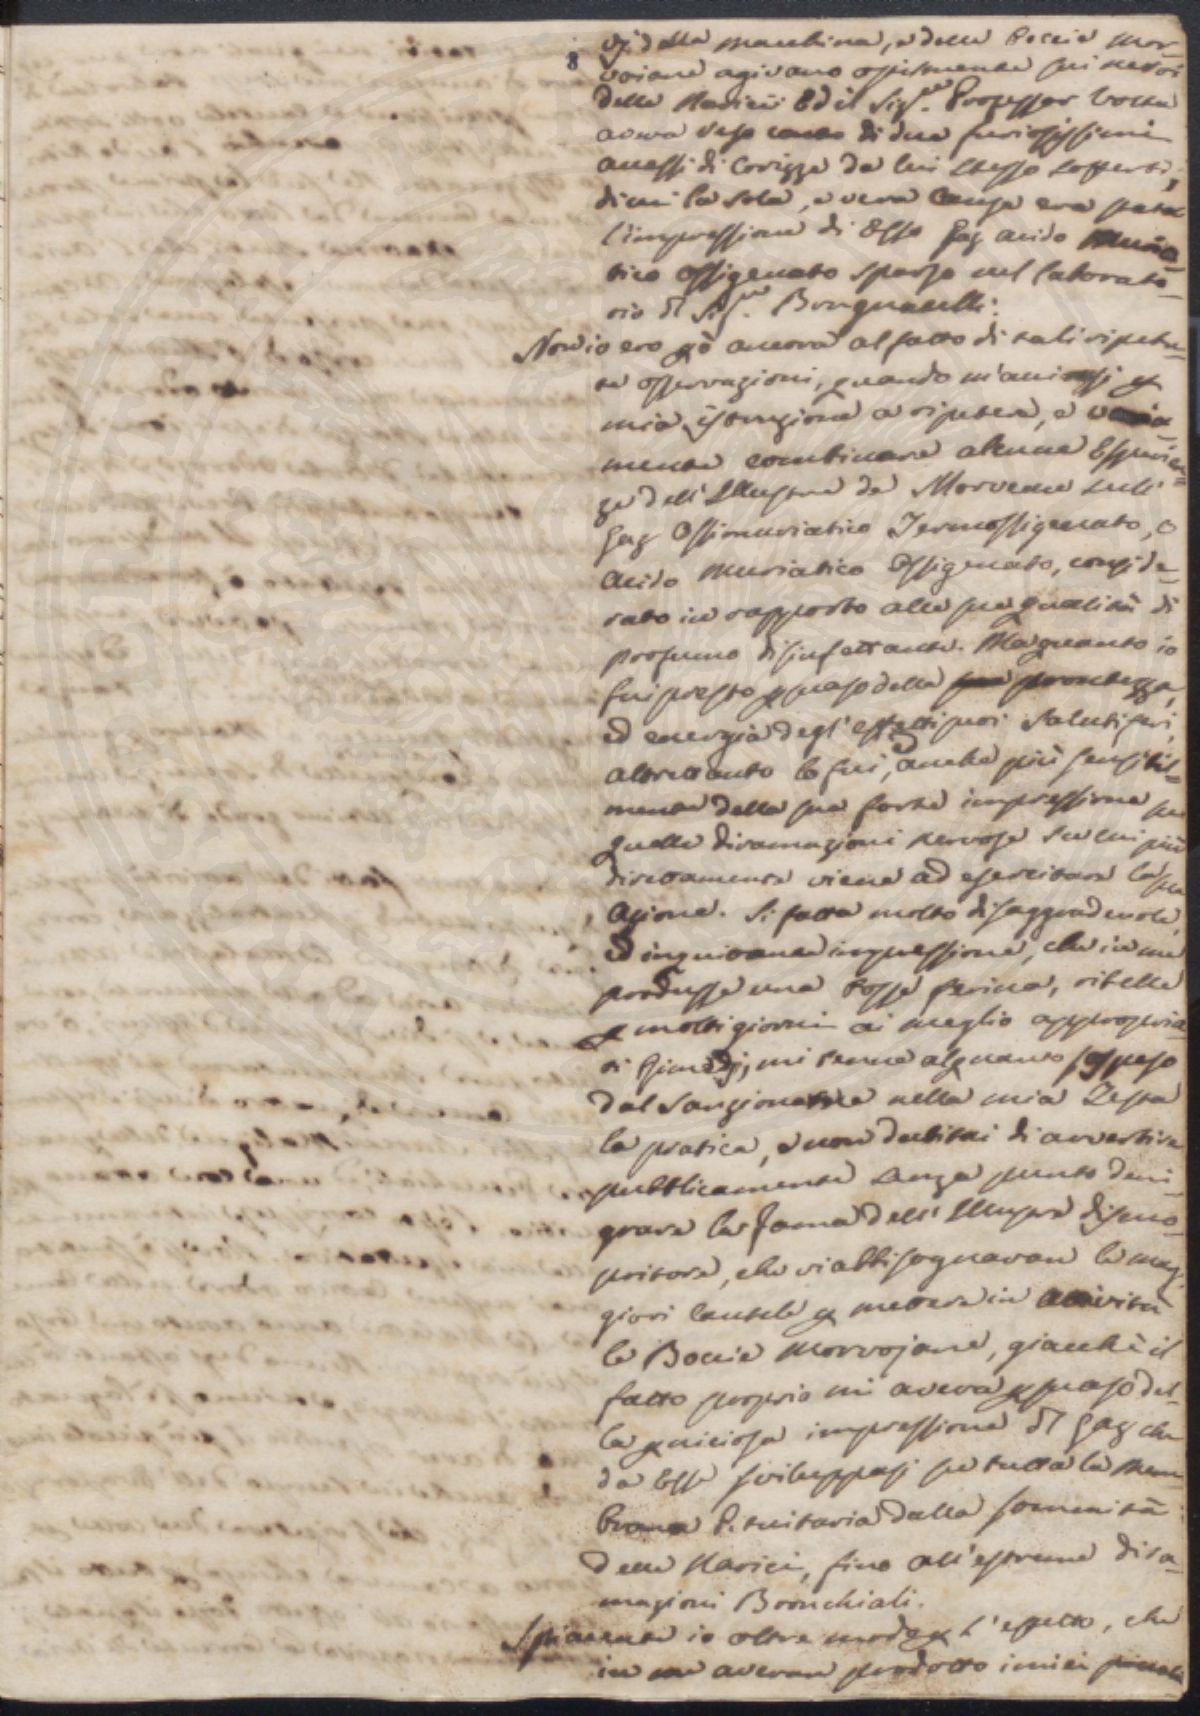 8
vj della macchina, e delle Boccie Mor-
voiane agivano ugualmente sui nervi
delle Narici: Ed il Sig.r Professor Volta
aveva reso conto di due furiosissimi
acessi di Corizza da lui stesso sofferti,
di cui la sola, e vera Causa era stata
l'impressione di Esso Gaz acido Muria-
tico ossigenato sparso nel laborato-
rio del Sig.r Brugnatelli.
Non io ero però ancora al fatto di tali ripetu-
te osservazioni, quando m'accinsi per
mia istruzione a ripetere, e varia-
mente combinare alcune Esperien-
ze dell'Illustre de Morveau sul
Gaz Ossimuriatico Termossigenato, o
Acido Muriatico Ossigenato, conside-
rato in rapporto alla sua qualità di
profumo disinfettante. Ma quanto io
fui presto persuaso della prontezza,
ed energia degl'effetti suoi salutiferi,
altrettanto lo fui, anche più sensibil-
mente della sua forte impressione su
quelle diramazioni nervose su cui più
direttamente viene ad esercitare la sua
Azione. Sì fatta molto disaggradevole,
ed inquietante impressione, che in me
produsse una tosse ferina, ribelle
per molti giorni ai meglio appropria-
ti rimedj, mi tenne alquanto sospeso
dal sanzionarne nella mia Testa
la pratica, e non dubitai di avvertire
pubblicamente senza punto deni-
grare la Fama dell'Illustre Disco-
pritore, che vi abbisognavan le mag-
giori Cautele per mettere in attività
le Boccie Morvojane, giacchè il
fatto proprio mi aveva persuaso del-
la perniciosa impressione del Gaz che
da Esse sviluppasi su tutta la Mem-
brana Pituitaria dalla sommità
delle Narici, fino all'estreme dira-
mazioni Bronchiali.
Spiacente io oltre modo per l'effetto, che
in me avevan prodotto i miei